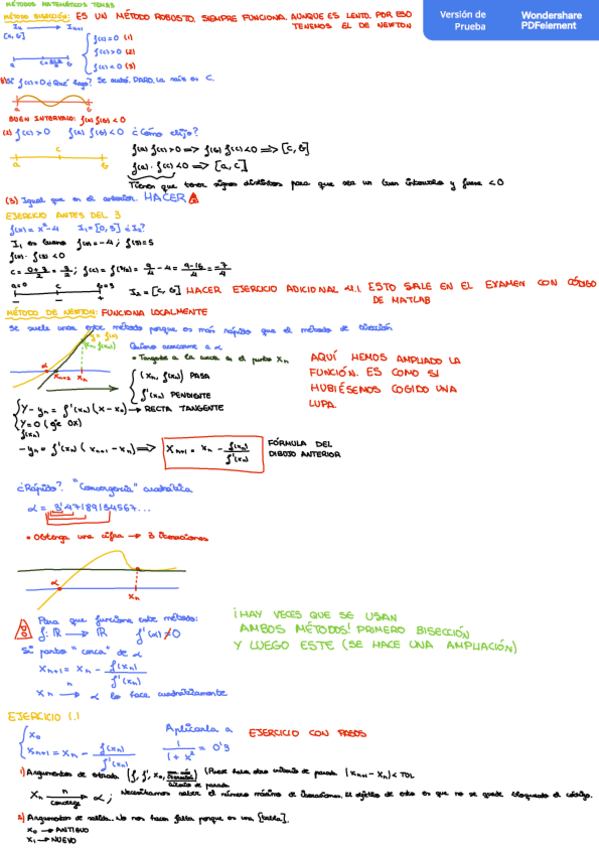 MÉTODOS MATEMÁTICOS TEMA5
Versión de Prueba
Wondershare PDFelement
MÉTODO BISECCIÓN: ES UN MÉTODO ROBUSTO. SIEMPRE FUNCIONA. AUNQUE ES LENTO. POR ESO
TENEMOS EL DE NEWTON
[a, b]
f(c)=0 (1)
f(c)>0 (2)
f(c)<0 (3)
a b
BUEN INTERVALO: f(a) f(b) < 0
(2) f(c) > 0 f(a) f(b) < 0 ¿Cómo elijo?
a c b
f(a) f(c) > 0 => f(b) f(c) < 0 => [c, b]
f(a) · f(c) < 0 => [a, c]
Tienen que tener signos distintos para que sea un buen intervalo y fuese < 0
(3) Igual que en el anterior. HACER
EJERCICIO ANTES DEL 3
f(x) = x² - 4 I₁ = [0, 3] ¿I₂?
I₁ es bueno f(0) = -4 ; f(3) = 5
f(0) · f(3) < 0
c = 0+3/2 = 3/2 ; f(c) = f(3/2) = 9/4 - 4 = 9-16/4 = -7/4
a=0 c b=3
I₂ = [c, b] HACER EJERCICIO ADICIONAL 4.1 ESTO SALE EN EL EXAMEN CON CÓDIGO
DE MATLAB
MÉTODO DE NEWTON: FUNCIONA LOCALMENTE
Se suele usar este método porque es más rápido que el método de bisección
Quiero acercarme a α
• Tangente a la curva en el punto Xn
α Xn+1 Xn
(Xn, f(Xn)) PASA
f'(Xn) PENDIENTE
AQUÍ HEMOS AMPLIADO LA
FUNCIÓN. ES COMO SI
HUBIÉSEMOS COGIDO UNA
LUPA.
Y - yn = f'(xn) (x - xn) → RECTA TANGENTE
Y = 0 (eje OX)
f(xn)
- yn = f'(xn) (xn+1 - xn) => Xn+1 = xn - f(xn)/f'(xn)
FÓRMULA DEL
DIBUJO ANTERIOR
¿Rápido?. "Convergencia" cuadrática
α = 3'47189134567...
• Obtengo una cifra → 3 iteraciones
α
Xn
Para que funcione este método:
f: ℝ → ℝ f'(α) ≠ 0
Si parto "cerca" de α
Xn+1 = Xn - f(xn)/f'(xn)
n
Xn → α lo hace cuadráticamente
¡HAY VECES QUE SE USAN
AMBOS MÉTODOS! PRIMERO BISECCIÓN
Y LUEGO ESTE (SE HACE UNA AMPLIACIÓN)
EJERCICIO 1.1
X₀
Xn+1 = Xn - f(xn)/f'(xn)
Aplicarla a
1/1+x² = 0'9
EJERCICIO CON PASOS
1) Argumentos de entrada (f, f', x₀,
criterio de parada
|xn+1 - xn| < TOL
Xn → α ;
n
converge
Necesitamos saber el número máximo de iteraciones. El objetivo de esto es que no se quede bloqueado el código.
2) Argumentos de salida. No nos hacen falta porque es una
X₀ → ANTIGUO
X₁ → NUEVO